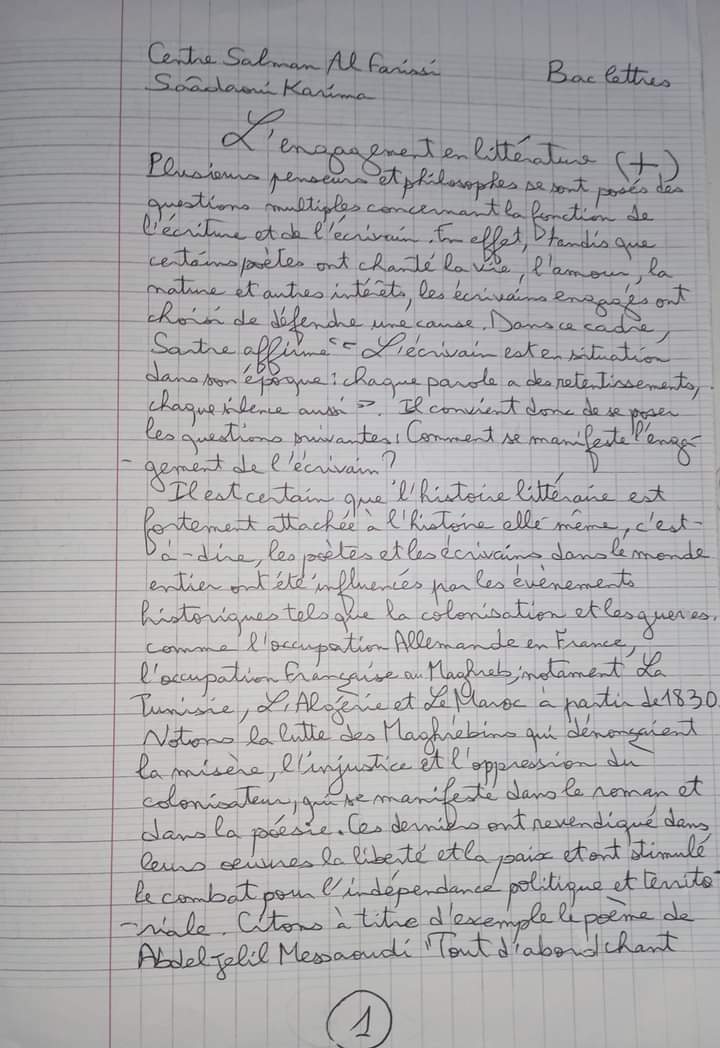 Centre Salman Al Farissi Bac lettres
Saâdaoui Karima
L'engagement en littérature (+)
Plusieurs penseurs et philosophes se sont posés des
questions multiples concernant la fonction de
l'écriture et de l'écrivain. En effet, tandis que
certains poètes ont chanté la vie, l'amour, la
nature et autres intérêts, les écrivains engagés ont
choisi de défendre une cause. Dans ce cadre,
Sartre affirme "L'écrivain est en situation
dans son époque : chaque parole a des retentissements,
chaque silence aussi". Il convient donc de se poser
les questions suivantes : Comment se manifeste l'enga-
-gement de l'écrivain ?
Il est certain que l'histoire littéraire est
fortement attachée à l'histoire elle même, c'est-
à-dire, les poètes et les écrivains dans le monde
entier ont été influencés par les évènements
historiques tels que la colonisation et les gueres.
comme l'occupation Allemande en France,
l'occupation Française au Maghreb, notament La
Tunisie, L'Algérie et Le Maroc à partir de 1830
Notons la lutte des Maghrébins qui dénonçaient
la misère, l'injustice et l'oppression du
colonisateur, qui se manifeste dans le roman et
dans la poésie. Ces derniers ont revendiqué dans
leurs oeuvres la liberté et la paix et ont stimulé
le combat pour l'indépendance politique et territo-
-riale. Citons à titre d'exemple le poème de
Abdeljelil Messaoudi "Tout d'abord chant
1